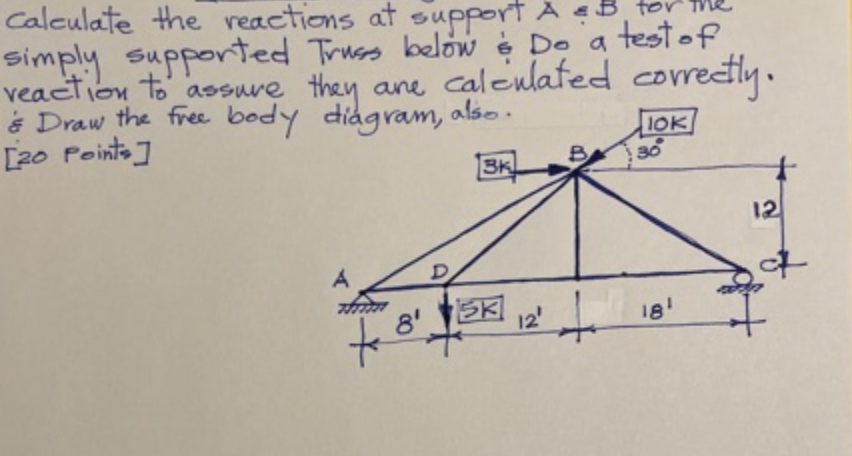 Calculate the reactions at support A & B for the
simply supported Truss below & Do a test of
reaction to assure they are calculated correctly.
& Draw the free body diagram, also.
[20 Points]
10K
3K
B
30°
12
A
D
C
5K
8'
12'
18'